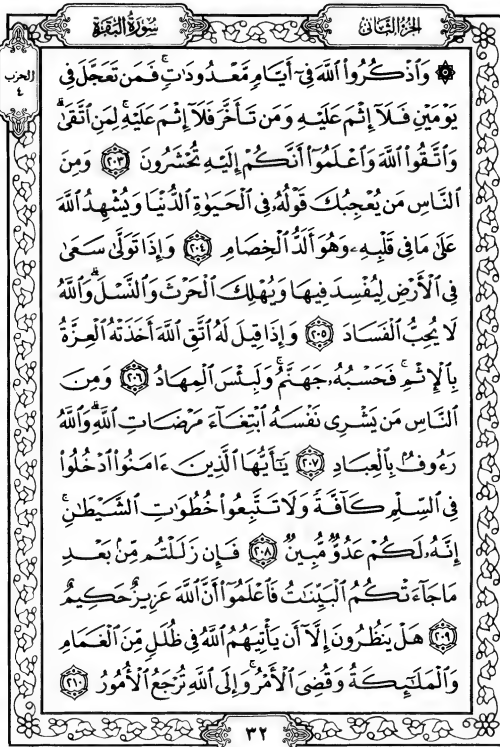 سُورَةُ البَقَرَةِ
الجزء الثاني
الحزب
٤
۞ وَٱذْكُرُوا۟ ٱللَّهَ فِىٓ أَيَّامٍ مَّعْدُودَٰتٍ ۚ فَمَن تَعَجَّلَ فِى
يَوْمَيْنِ فَلَآ إِثْمَ عَلَيْهِ وَمَن تَأَخَّرَ فَلَآ إِثْمَ عَلَيْهِ ۚ لِمَنِ ٱتَّقَىٰ ۗ
وَٱتَّقُوا۟ ٱللَّهَ وَٱعْلَمُوٓا۟ أَنَّكُمْ إِلَيْهِ تُحْشَرُونَ ٢٠٣ وَمِنَ
ٱلنَّاسِ مَن يُعْجِبُكَ قَوْلُهُۥ فِى ٱلْحَيَوٰةِ ٱلدُّنْيَا وَيُشْهِدُ ٱللَّهَ
عَلَىٰ مَا فِى قَلْبِهِۦ وَهُوَ أَلَدُّ ٱلْخِصَامِ ٢٠٤ وَإِذَا تَوَلَّىٰ سَعَىٰ
فِى ٱلْأَرْضِ لِيُفْسِدَ فِيهَا وَيُهْلِكَ ٱلْحَرْثَ وَٱلنَّسْلَ ۗ وَٱللَّهُ
لَا يُحِبُّ ٱلْفَسَادَ ٢٠٥ وَإِذَا قِيلَ لَهُ ٱتَّقِ ٱللَّهَ أَخَذَتْهُ ٱلْعِزَّةُ
بِٱلْإِثْمِ ۚ فَحَسْبُهُۥ جَهَنَّمُ ۚ وَلَبِئْسَ ٱلْمِهَادُ ٢٠٦ وَمِنَ
ٱلنَّاسِ مَن يَشْرِى نَفْسَهُ ٱبْتِغَآءَ مَرْضَاتِ ٱللَّهِ ۗ وَٱللَّهُ
رَءُوفٌۢ بِٱلْعِبَادِ ٢٠٧ يَٰٓأَيُّهَا ٱلَّذِينَ ءَامَنُوا۟ ٱدْخُلُوا۟
فِى ٱلسِّلْمِ كَآفَّةً وَلَا تَتَّبِعُوا۟ خُطُوَٰتِ ٱلشَّيْطَٰنِ ۚ
إِنَّهُۥ لَكُمْ عَدُوٌّ مُّبِينٌ ٢٠٨ فَإِن زَلَلْتُم مِّنۢ بَعْدِ
مَا جَآءَتْكُمُ ٱلْبَيِّنَٰتُ فَٱعْلَمُوٓا۟ أَنَّ ٱللَّهَ عَزِيزٌ حَكِيمٌ
٢٠٩ هَلْ يَنظُرُونَ إِلَّآ أَن يَأْتِيَهُمُ ٱللَّهُ فِى ظُلَلٍ مِّنَ ٱلْغَمَامِ
وَٱلْمَلَٰٓئِكَةُ وَقُضِىَ ٱلْأَمْرُ ۚ وَإِلَى ٱللَّهِ تُرْجَعُ ٱلْأُمُورُ ٢١٠
٣٢